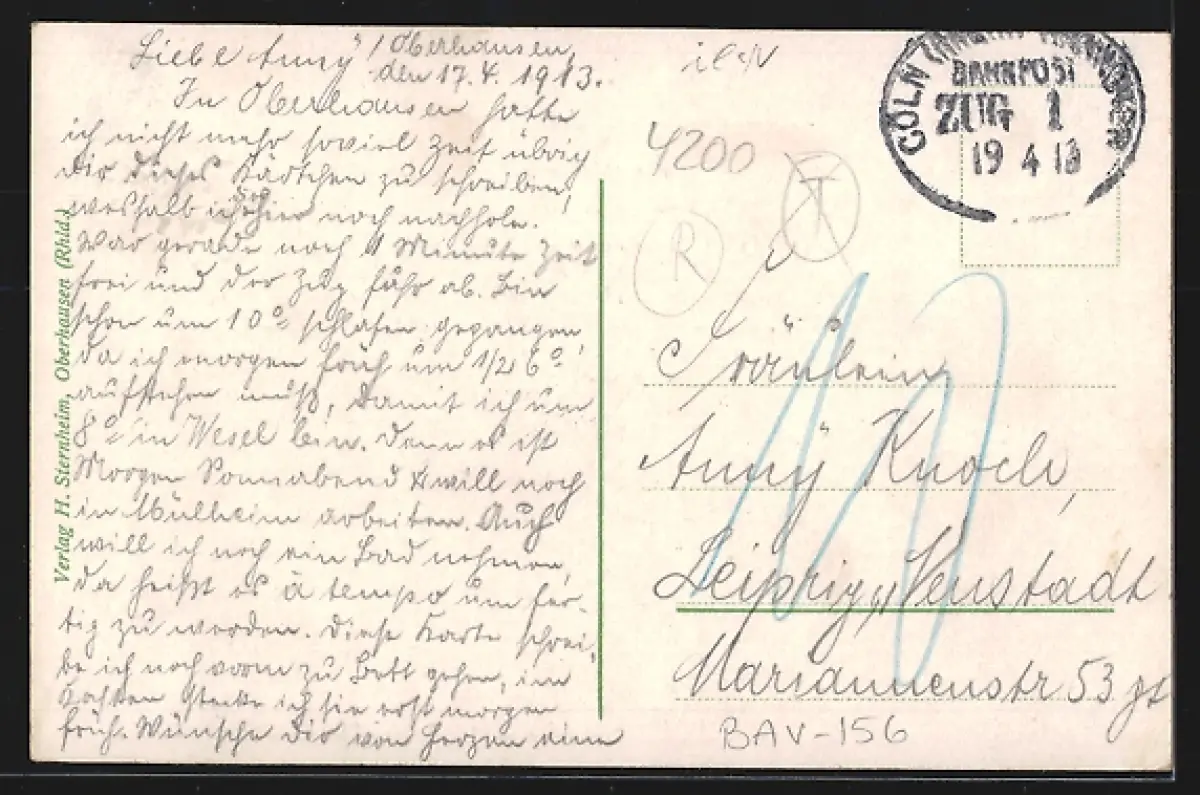 Liebe Anny! / Oberhausen,
den 17.4.1913.
In Oberhausen hatte
ich nicht mehr soviel Zeit übrig
dir dieses Kärtchen zu schreiben,
weshalb ich es hier noch nachhole.
War gerade noch 1 Minute Zeit
frei und der Zug fuhr ab. Bin
schon um 10° schlafen gegangen,
da ich morgen früh um 1/2 6°
aufstehen muß, damit ich um
8° in Wesel bin. Denn es ist
Morgen Sonnabend & will noch
in Mülheim arbeiten. Auch
will ich noch ein Bad nehmen,
da heißt es à tempo um fer-
tig zu werden. Diese Karte schrei-
be ich noch vorm zu Bett gehen, im
Kasten stecke ich sie erst morgen
früh. Wünsche dir von Herzen eine
Verlag H. Sternheim, Oberhausen (Rhld.)
CÖLN (RHEIN) HANNOVER
BAHNPOST
ZUG 1
19 4 13
4200
T
R
Fräulein
Anny Knoch,
Leipzig-Neustadt
Mariannenstr 53
BAV-156